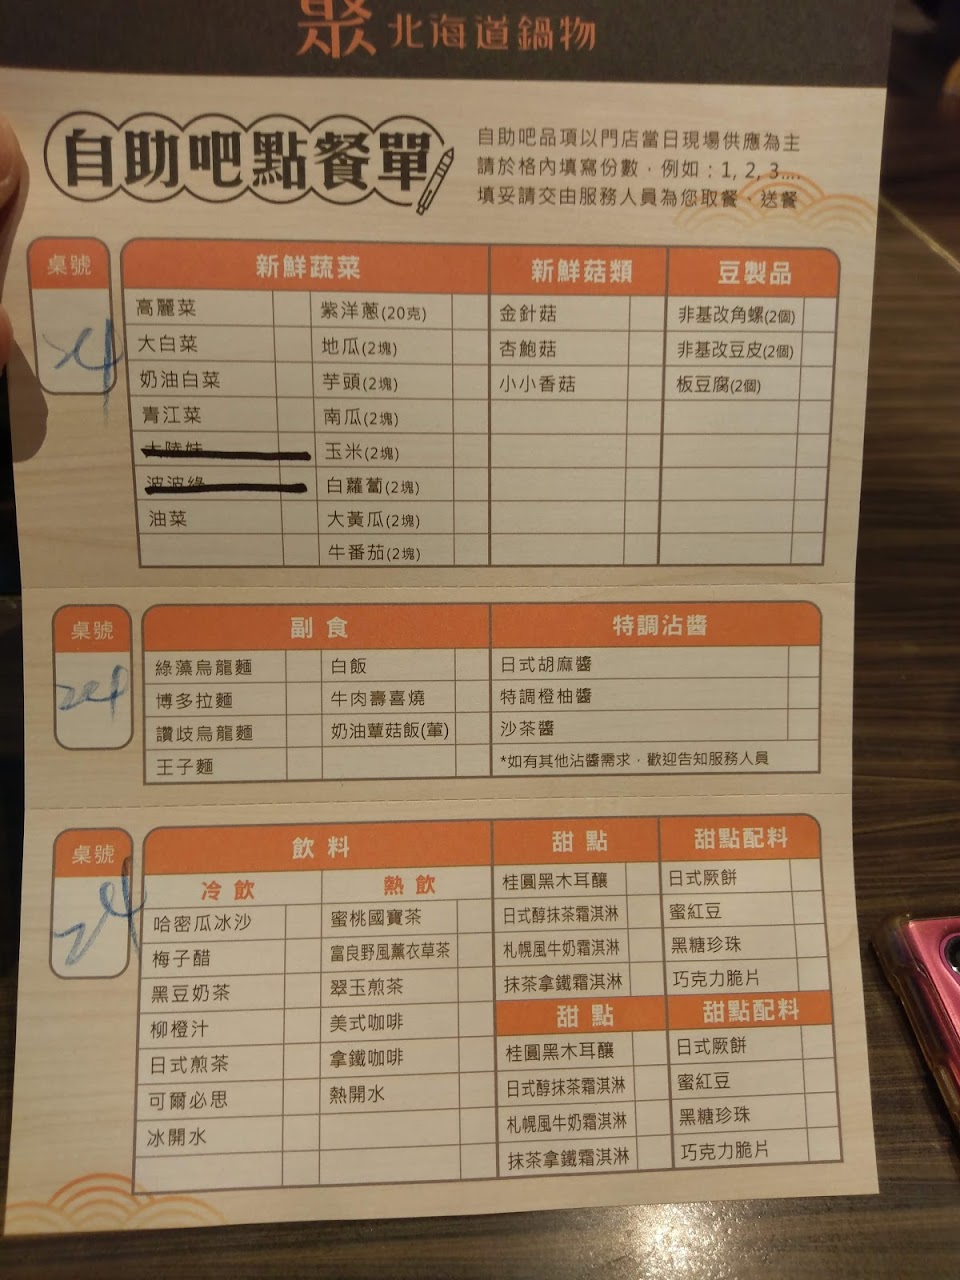 聚 北海道鍋物
自助吧點餐單
自助吧品項以門店當日現場供應為主
請於格內填寫份數，例如：1, 2, 3....
填妥請交由服務人員為您取餐、送餐
桌號
新鮮蔬菜 新鮮菇類 豆製品
高麗菜 紫洋蔥(20克) 金針菇 非基改角螺(2個)
大白菜 地瓜(2塊) 杏鮑菇 非基改豆皮(2個)
奶油白菜 芋頭(2塊) 小小香菇 板豆腐(2個)
青江菜 南瓜(2塊)
大陸妹 玉米(2塊)
波波綠 白蘿蔔(2塊)
油菜 大黃瓜(2塊)
牛番茄(2塊)
桌號
24
副食 特調沾醬
綠藻烏龍麵 白飯 日式胡麻醬
博多拉麵 牛肉壽喜燒 特調橙柚醬
讚歧烏龍麵 奶油蕈菇飯(葷) 沙茶醬
王子麵 *如有其他沾醬需求，歡迎告知服務人員
桌號
24
飲料 甜點 甜點配料
冷飲 熱飲 桂圓黑木耳釀 日式厥餅
哈密瓜冰沙 蜜桃國寶茶 日式醇抹茶霜淇淋 蜜紅豆
梅子醋 富良野風薰衣草茶 札幌風牛奶霜淇淋 黑糖珍珠
黑豆奶茶 翠玉煎茶 抹茶拿鐵霜淇淋 巧克力脆片
柳橙汁 美式咖啡 甜點 甜點配料
日式煎茶 拿鐵咖啡 桂圓黑木耳釀 日式厥餅
可爾必思 熱開水 日式醇抹茶霜淇淋 蜜紅豆
冰開水 札幌風牛奶霜淇淋 黑糖珍珠
抹茶拿鐵霜淇淋 巧克力脆片